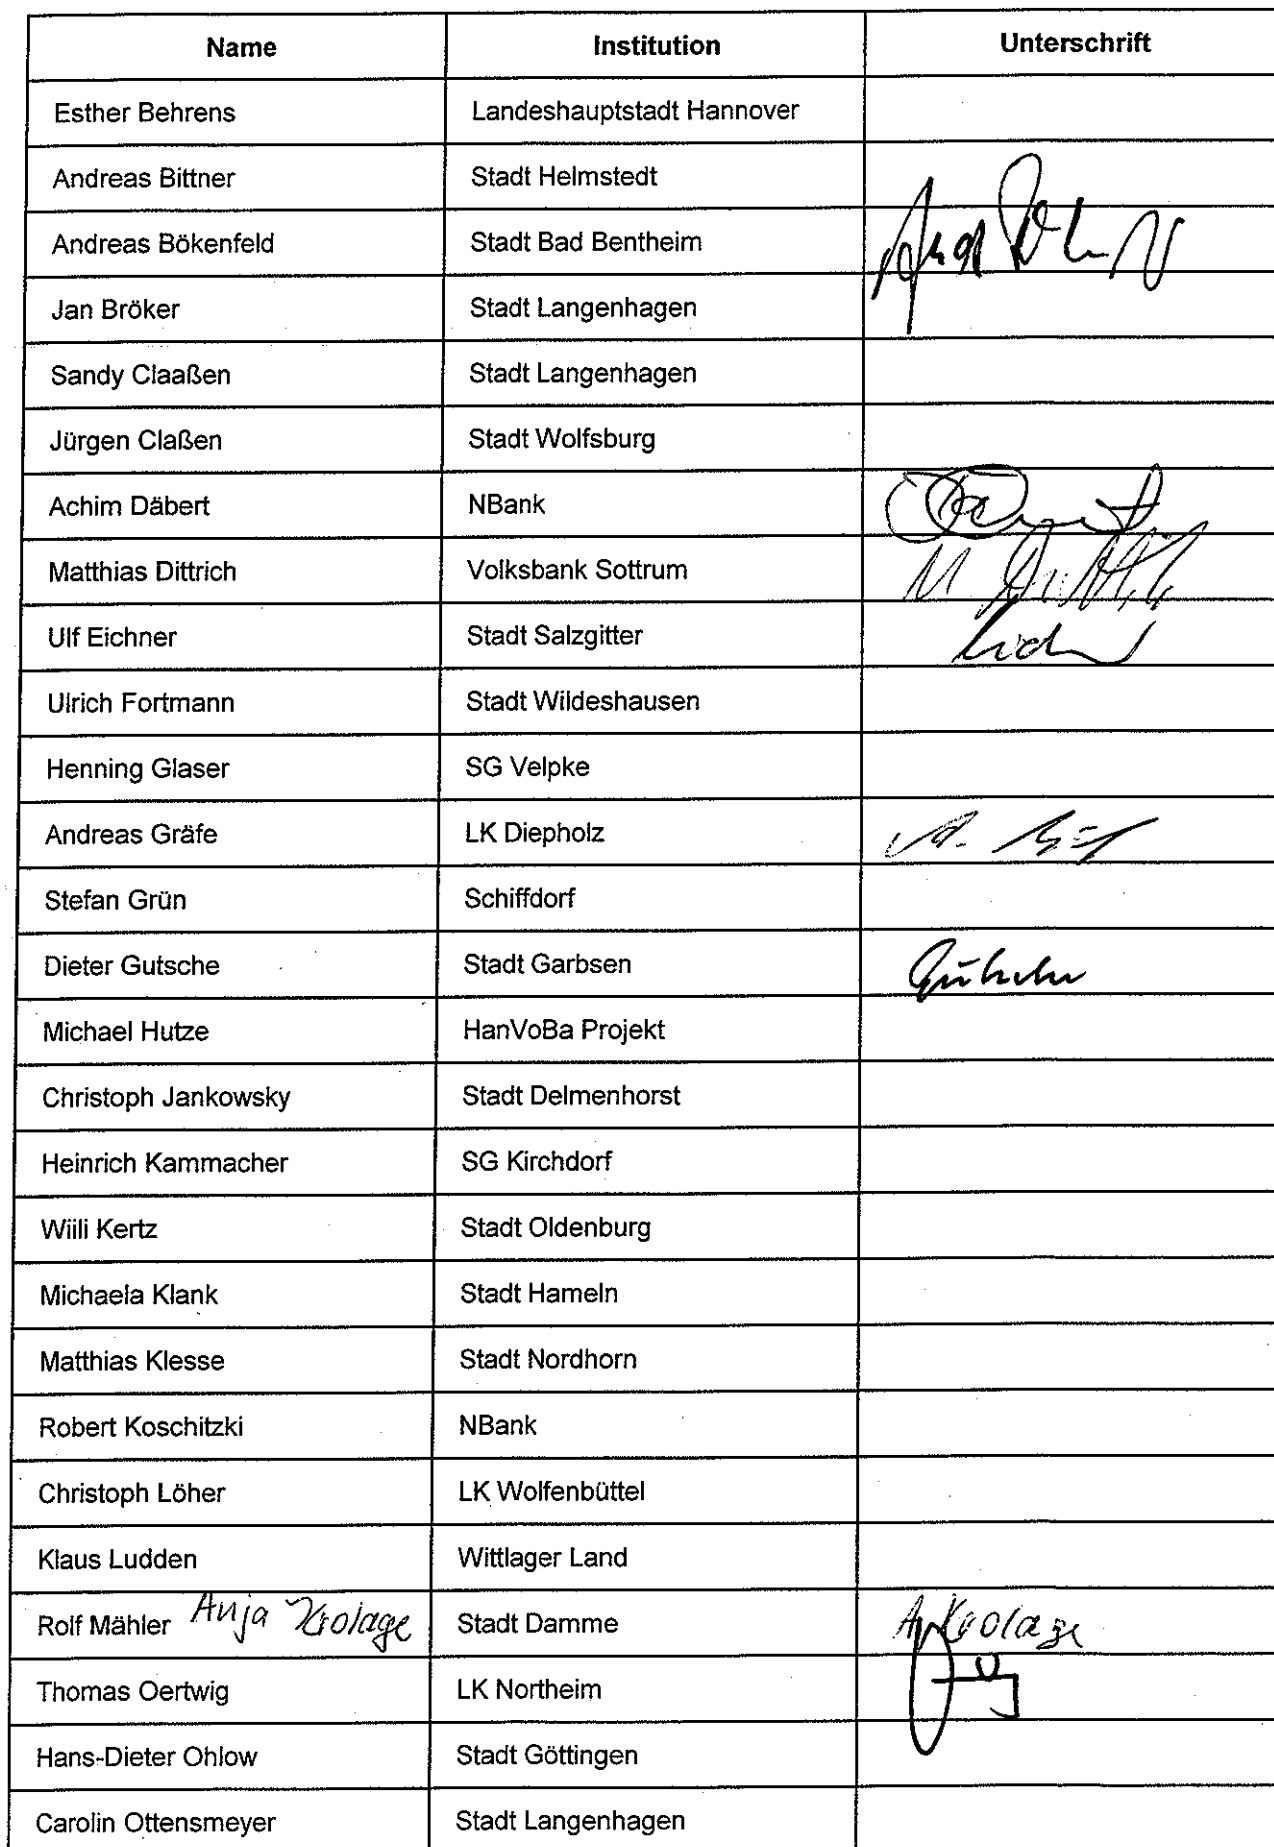 Name Institution Unterschrift
Esther Behrens Landeshauptstadt Hannover
Andreas Bittner Stadt Helmstedt
Andreas Bökenfeld Stadt Bad Bentheim
Jan Bröker Stadt Langenhagen
Sandy Claaßen Stadt Langenhagen
Jürgen Claßen Stadt Wolfsburg
Achim Däbert NBank
Matthias Dittrich Volksbank Sottrum
Ulf Eichner Stadt Salzgitter
Ulrich Fortmann Stadt Wildeshausen
Henning Glaser SG Velpke
Andreas Gräfe LK Diepholz
Stefan Grün Schiffdorf
Dieter Gutsche Stadt Garbsen
Michael Hutze HanVoBa Projekt
Christoph Jankowsky Stadt Delmenhorst
Heinrich Kammacher SG Kirchdorf
Wiili Kertz Stadt Oldenburg
Michaela Klank Stadt Hameln
Matthias Klesse Stadt Nordhorn
Robert Koschitzki NBank
Christoph Löher LK Wolfenbüttel
Klaus Ludden Wittlager Land
Rolf Mähler Anja Krolage Stadt Damme A. Krolage
Thomas Oertwig LK Northeim
Hans-Dieter Ohlow Stadt Göttingen
Carolin Ottensmeyer Stadt Langenhagen